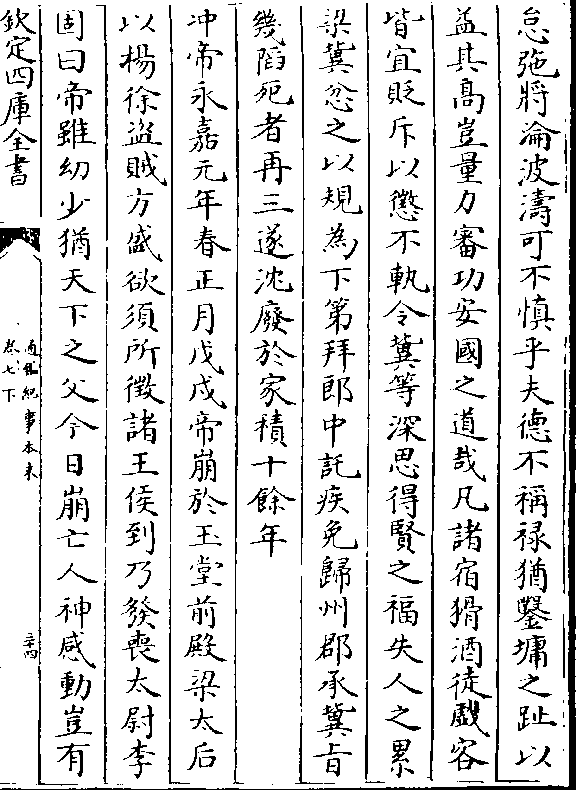 怠弛將淪波濤可不慎乎夫德不稱禄猶鑿墉之趾以
益其髙豈量力審功安國之道哉凡諸宿猾酒徒戲客
皆宜貶斥以懲不軌令冀等深思得賢之福失人之累
梁冀忿之以規為下第拜郎中託疾免歸州郡承冀㫖
幾䧟死者再三遂沈廢於家積十餘年
冲帝永嘉元年春正月戊戌帝崩於玉堂前殿梁太后
以楊徐盗賊方盛欲須所徵諸王侯到乃發喪太尉李
固曰帝雖幼少猶天下之父今日崩亡人神感動豈有
欽定四庫全書
通鑑紀事本末
卷七下
三十四